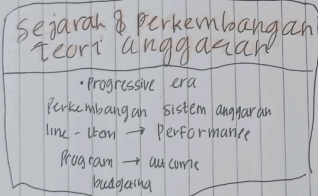 Sejarah & Perkembangan
teori anggaran
• Progressive era
Perkembangan sistem anggaran
line - item → Performance
Program → outcome
budgeting